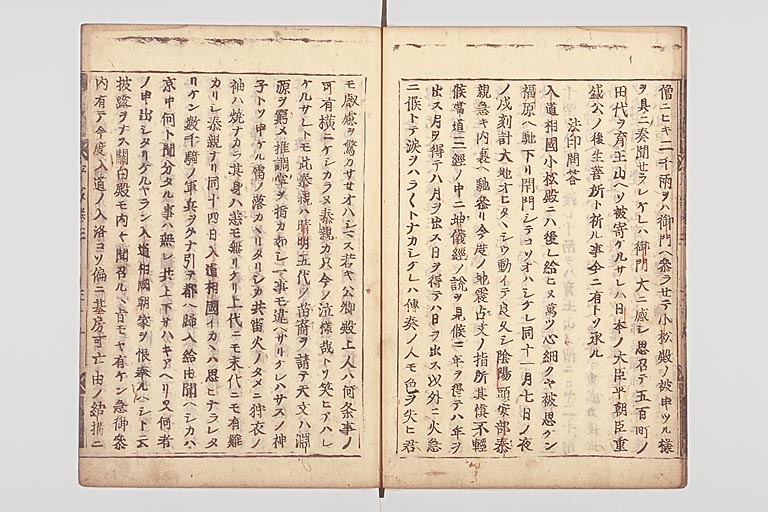 僧ニヒキ二千両ヲハ御門ヘ参ラセテ小松殿ノ被申ツル様
ヲ具ニ奏聞セラレケレハ御門大ニ感シ思召テ五百町ノ
田代ヲ育王山ヘソ被寄ケルサレハ日本ノ大臣平朝臣重
盛公ノ後生善所ト祈ル事今ニ有トソ承ル
法印問答
入道相國小松殿ニハ後レ給ヒヌ萬ツ心細クヤ被思ケン
福原ヘ馳下リ閇門シテコソオハシケレ同十一月七日ノ夜
ノ戌刻計大地オヒタヽシウ動イテ良久シ陰陽頭安部泰
親急キ内裏ヘ馳参リ今度ノ地震占文ノ指所其慎不軽
候當道三經ノ中ニ坤儀經ノ説ヲ見候ニ年ヲ得テハ年ヲ
出ス月ヲ得テハ月ヲ出ス日ヲ得テハ日ヲ出ス以外ニ火急
ニ候トテ涙ヲハラ〱トナカシケレハ傳奏ノ人モ色ヲ失ヒ君
モ叡慮ヲ驚カサセオハシマス若キ公卿殿上人ハ何条事ノ
可有横ニケシカラヌ泰親カ只今ノ泣様哉トソ笑ヒアハレ
ケルサレトモ此泰親ハ晴明五代ノ苗裔ヲ請テ天文ハ淵
源ヲ窮メ推調掌ヲ指カ如シ一事モ違ヘサリケレハサスノ神
子トソ申ケル雷ノ落カヽリタリシカ共雷火ノタメニ狩衣ノ
袖ハ焼ナカラ其身ハ恙モ無リケリ上代ニモ末代ニモ有難
カリシ泰親ナリ同十四日入道相國イカヽハ思ヒナラレタ
リケン数千騎ノ軍兵ヲタナ引テ都ヘ歸入給由聞ヘシカハ
京中何ト聞分タル事ハ無レ共上下サハキアヘリ又何者
ノ申出シタリケルヤラン入道相國朝家ヲ恨奉ルヘシト云
披露ヲナス關白殿モ内々聞召ルヽ旨モヤ有ケン急御参
内有テ今度入道ノ入洛ヨソ偏ニ基房可亡由ノ結構ニ